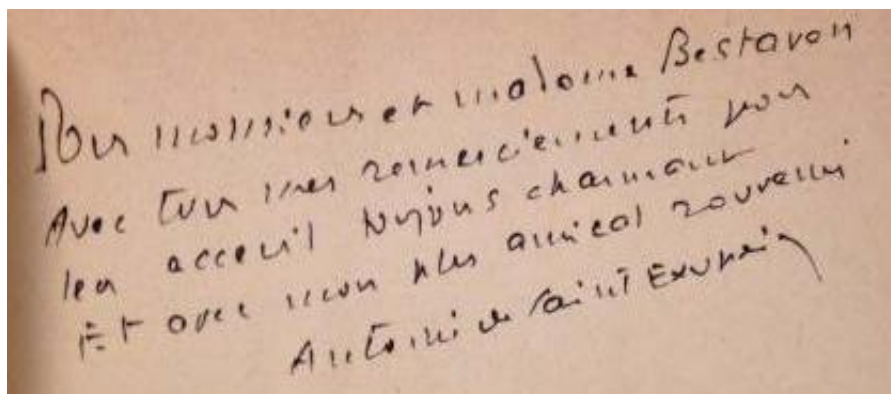 Pour monsieur et madame Bestavon
Avec tous mes remerciements pour
leur acceuil toujours charmant
Et avec mon plus amical souvenir
Antoine de Saint Exupéry